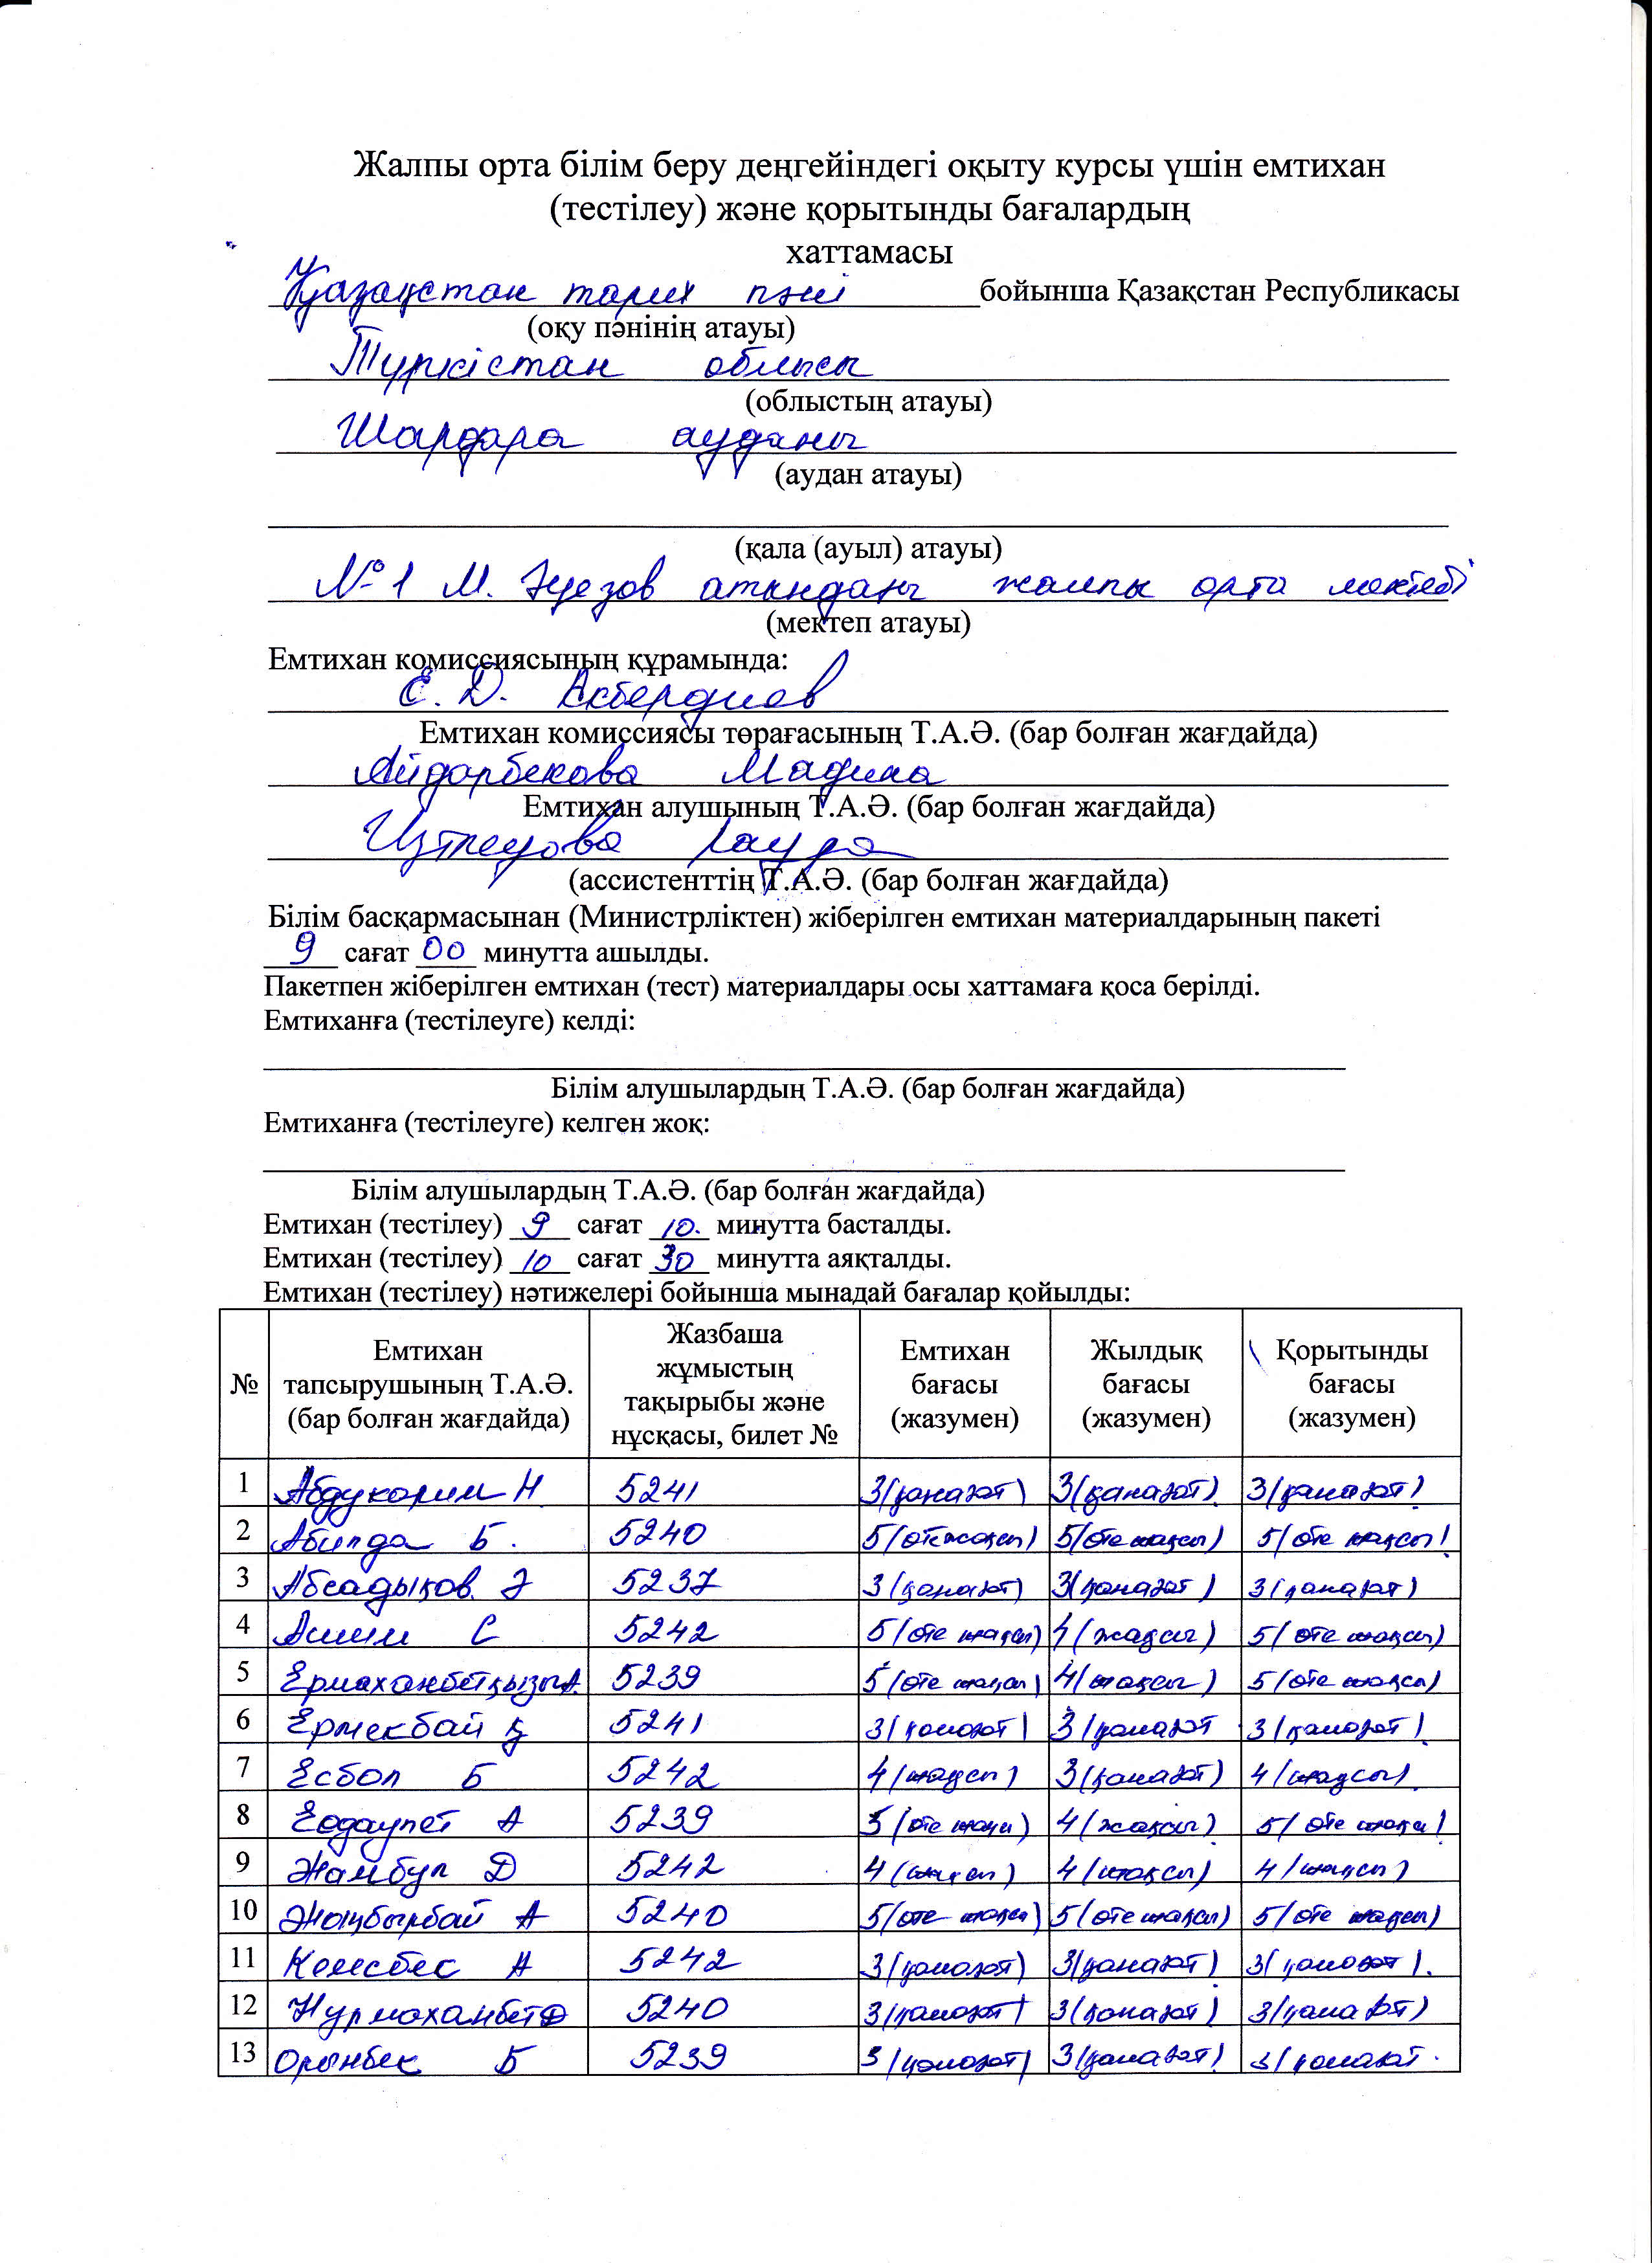 Жалпы орта білім беру деңгейіндегі оқыту курсы үшін емтихан
(тестілеу) және қорытынды бағалардың
хаттамасы
Қазақстан тарих пәні бойынша Қазақстан Республикасы
(оқу пәнінің атауы)
Түркістан облысы
(облыстың атауы)
Шардара ауданы
(аудан атауы)
(қала (ауыл) атауы)
№1 М. Әуезов атындағы жалпы орта мектебі
(мектеп атауы)
Емтихан комиссиясының құрамында:
Е. Д. Акбердиев
Емтихан комиссиясы төрағасының Т.А.Ә. (бар болған жағдайда)
Айдарбекова Мадина
Емтихан алушының Т.А.Ә. (бар болған жағдайда)
Изтеуова Лаура
(ассистенттің Т.А.Ә. (бар болған жағдайда)
Білім басқармасынан (Министрліктен) жіберілген емтихан материалдарының пакеті
9 сағат 00 минутта ашылды.
Пакетпен жіберілген емтихан (тест) материалдары осы хаттамаға қоса берілді.
Емтиханға (тестілеуге) келді:
Білім алушылардың Т.А.Ә. (бар болған жағдайда)
Емтиханға (тестілеуге) келген жоқ:
Білім алушылардың Т.А.Ә. (бар болған жағдайда)
Емтихан (тестілеу) 9 сағат 10. минутта басталды.
Емтихан (тестілеу) 10 сағат 30 минутта аяқталды.
Емтихан (тестілеу) нәтижелері бойынша мынадай бағалар қойылды:
№ Емтихан тапсырушының Т.А.Ә. (бар болған жағдайда) Жазбаша жұмыстың тақырыбы және нұсқасы, билет № Емтихан бағасы (жазумен) Жылдық бағасы (жазумен) Қорытынды бағасы (жазумен)
1 Абдукарим Н 5241 3(қанағат) 3(қанағат) 3(қанағат)
2 Абилда Б. 5240 5(өте жақсы) 5(өте жақсы) 5(өте жақсы)
3 Абсадықов. Ә 5237 3(қанағат) 3(қанағат) 3(қанағат)
4 Асим С 5242 5(өте жақсы) 4(жақсы) 5(өте жақсы)
5 Ермаханбетқызы А. 5239 5(өте жақсы) 4(жақсы) 5(өте жақсы)
6 Ермекбай 5241 3(қанағат) 3(қанағат 3(қанағат)
7 Есбол Б 5242 4(жақсы) 3(қанағат) 4(жақсы)
8 Еодаулет А 5239 5(өте жақсы) 4(жақсы) 5(өте жақсы)
9 Жамбул Д 5242 4(жақсы) 4(жақсы) 4(жақсы)
10 Жаңбырбай А 5240 5(өте жақсы) 5(өте жақсы) 5(өте жақсы)
11 Кеңесбек А 5242 3(қанағат) 3(қанағат) 3(қанағат).
12 Нурмаханбет 5240 3(қанағат) 3(қанағат) 3(қанағат)
13 Орынбек Б 5239 3(қанағат) 3(қанағат) 3(қанағат.